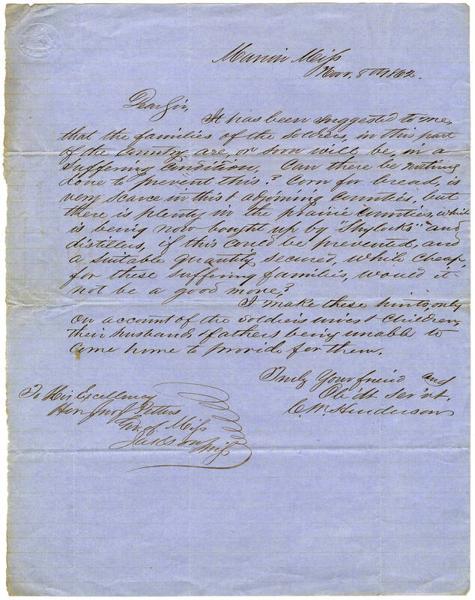 Marion Miss
Nov. 8th 1862.
Dear Sir,
It has been suggested to me,
that the families of the soldiers in this part
of the Country are, or soon will be, in a
suffering condition, Can there be nothing
done to prevent this? Corn for bread, is
very scarce in this & adjoining counties, but
there is plenty in the prairie counties, which
is being now bought up by "Shylocks" and
distillers, if this could be prevented, and
a suitable quantity, secured, while cheap,
for these suffering families, would it
not be a good move?
I make these hints, only
on account of the soldiers wives & children,
their husbands & fathers being unable to
come home to provide for them.
Truly Your friend and
Obdt Servt.
C. W. Henderson
To His Excellency
Hon Jno J. Pettus
Gov. of Miss
Jackson Miss